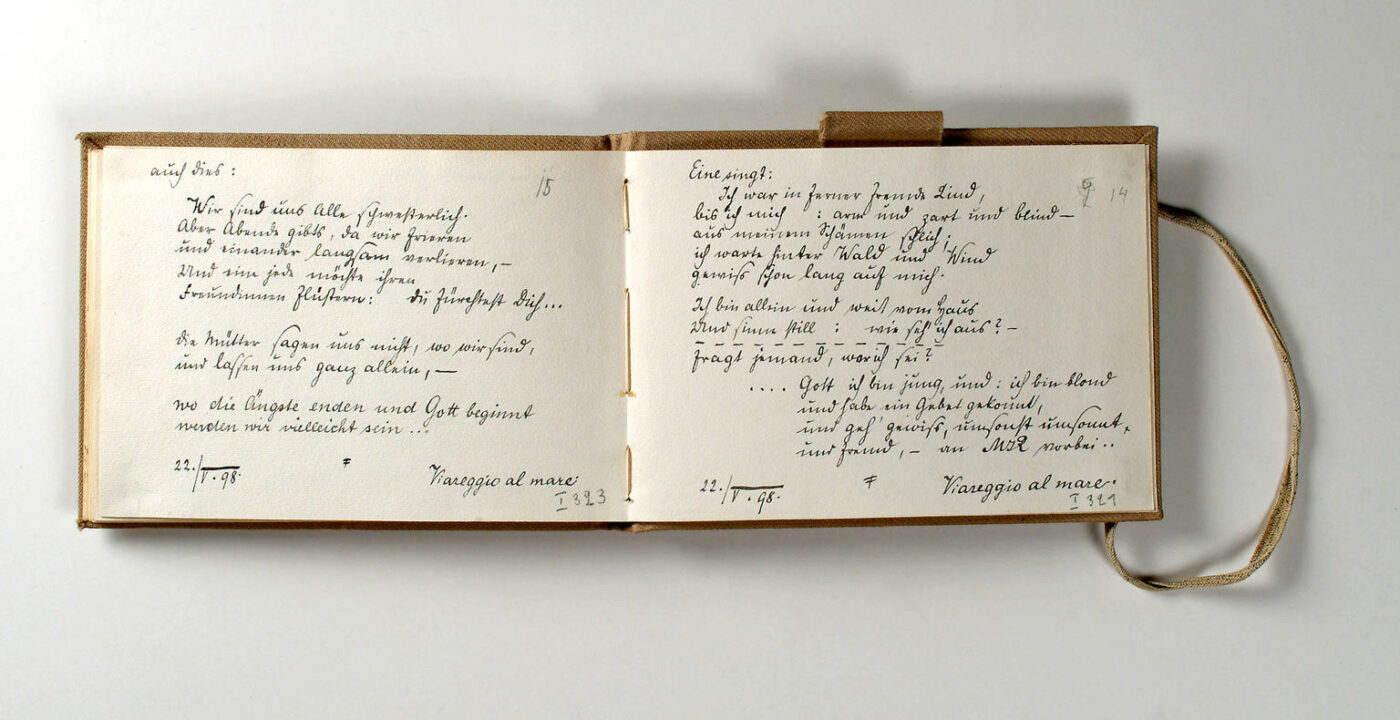 auch dies:
15
Wir sind uns Alle schwesterlich.
Aber Abende gibts, da wir frieren
und einander langsam verlieren, –
Und eine jede möchte ihren
Freundinnen flüstern: du fürchtest dich...
die Mütter sagen uns nicht, wo wir sind,
und lassen uns ganz allein, –
wo die Ängste enden und Gott beginnt
werden wir vielleicht sein ...
22./V. 98. Viareggio al mare.
I 323
Eine singt:
14
Ich war in ferner Fremde Kind,
bis ich mich : arm und zart und blind –
aus meinem Schämen schlich;
ich warte hinter Wald und Wind
gewiss schon lang auf mich.
Ich bin allein und weit vom Haus
Und sinne still : wie seh' ich aus? –
fragt jemand, wer ich sei?
.... Gott ich bin jung, und : ich bin blond
und habe ein Gebet gekonnt,
und geh' gewiss, umsonst umsonnt,
und fremd, – an MIR vorbei ..
22./V. 98. Viareggio al mare.
I 321